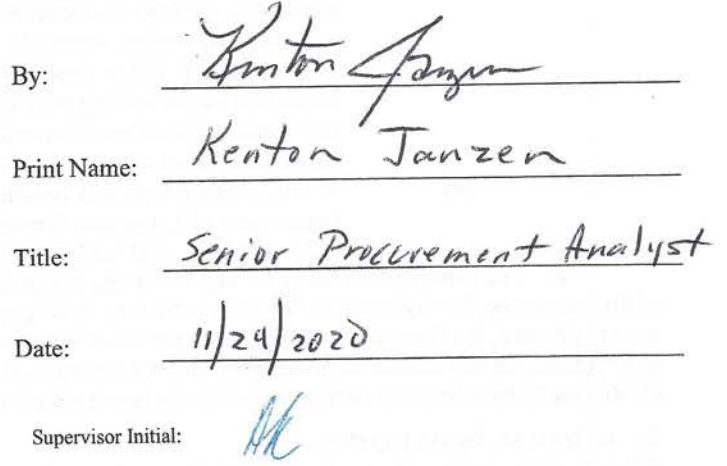 By: Kenton Janzen
Print Name: Kenton Janzen
Title: Senior Procurement Analyst
Date: 11/24/2020
Supervisor Initial: AK